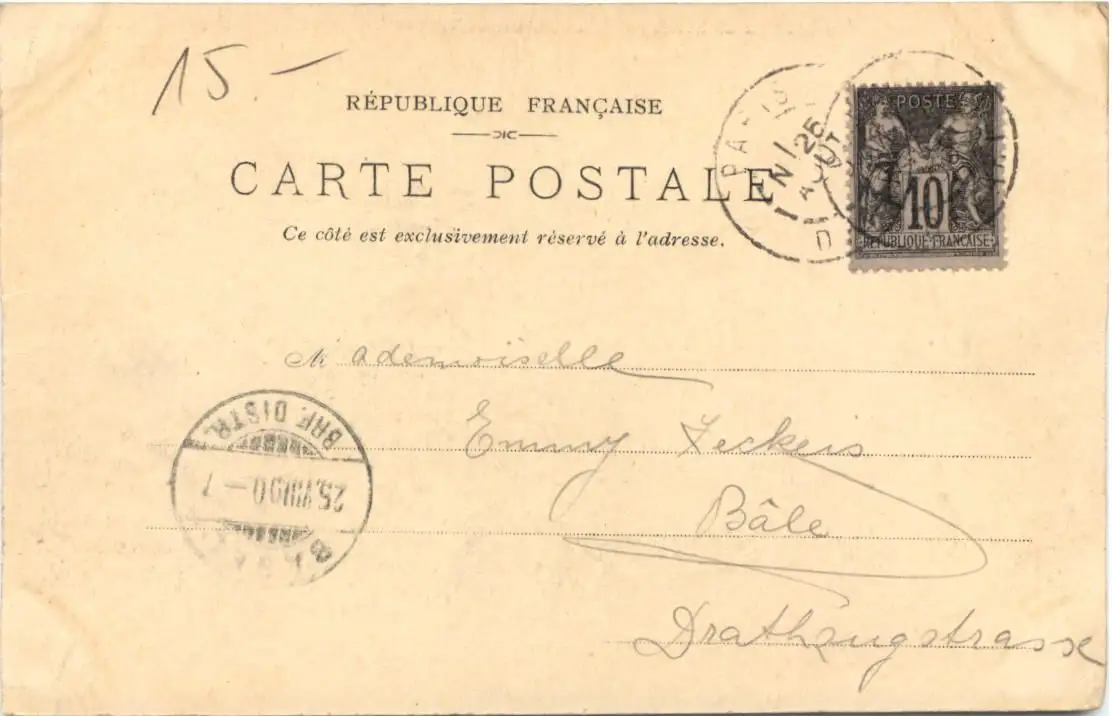 15.-
RÉPUBLIQUE FRANÇAISE
CARTE POSTALE
Ce côté est exclusivement réservé à l'adresse.
PARIS
25
AOUT
D
POSTE
10
RÉPUBLIQUE FRANÇAISE
Mademoiselle
Emmy
Bâle
Drathzugstrasse
BRF. DISTR.
25.VIII.00-7